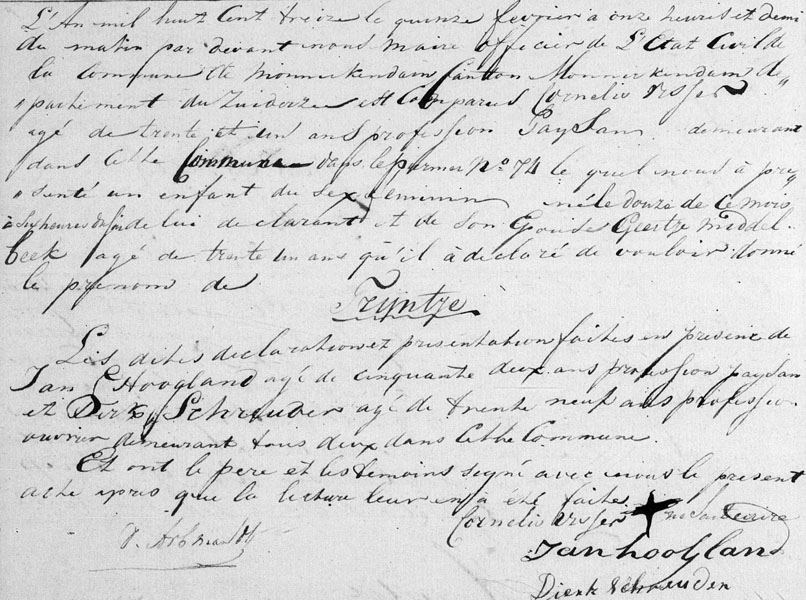 L'An mil huit Cent treize le quinze fevrier a onze heures et demi
du matin par devant nous maire officier de L'Etat Civil de
la Commune de Monnikendam Canton Monnikendam de„
„partement du Zuiderzee est Comparus Cornelis Visser
agé de trente et un ans profession Paysan demeurant
dans Cette Commune dans le No. 74 le quel nous à pre„
„senté un enfant du Sexe feminin né le douze de Ce mois
à Six heures du de lui declarant et de Son Epouse Geertje Middel-
beek agé de trente un ans qu'il à declaré de vouloir donné
le prenom de
Tryntje
Les dites declaration et presentation faites en presence de
Jan Hoogland agé de cinquante deux ans profession paysan
et Dirk Schreuder agé de trente neuf ans profession
ouvrier demeurant tous deux dans Cette Commune.
Et ont le pere et les temoins signé avec nous le present
acte apres que la lecture leur en à été faite.
Cornelis Visser
Jan hoogland
Dierk Schreuder